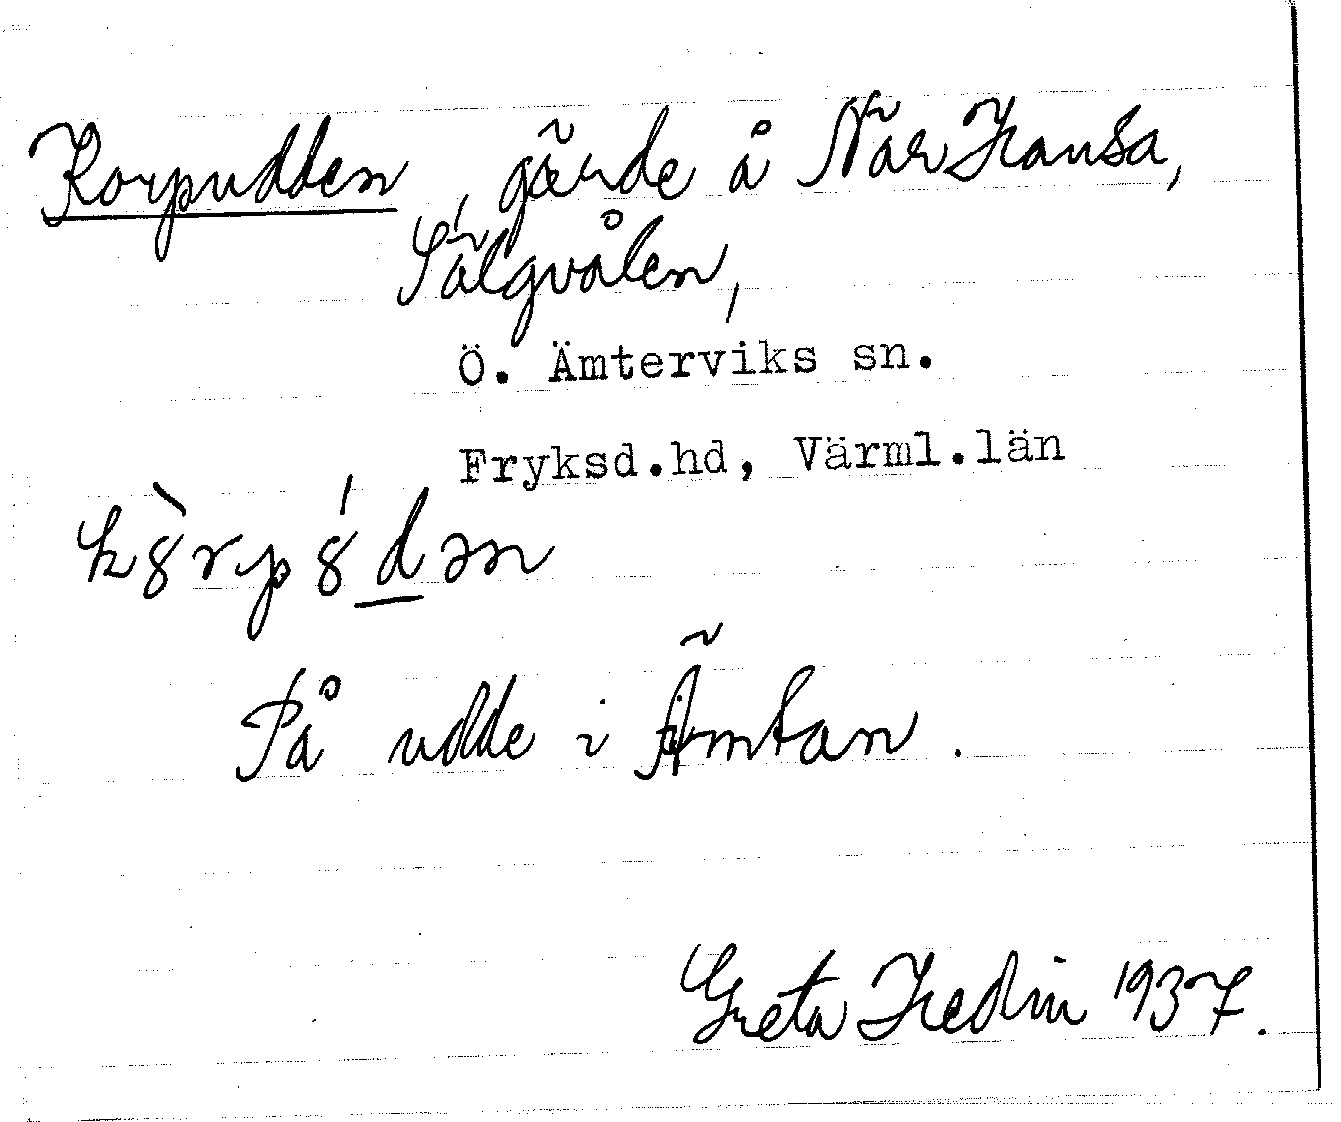 Korpudden, gärde å När Hansa,
Sälgvålen,
Ö. Ämterviks sn.
Fryksd.hd, Värml.län
kȣ̀rpȣ́dən
På udde i Ämtan.
Greta Hedin 1937.